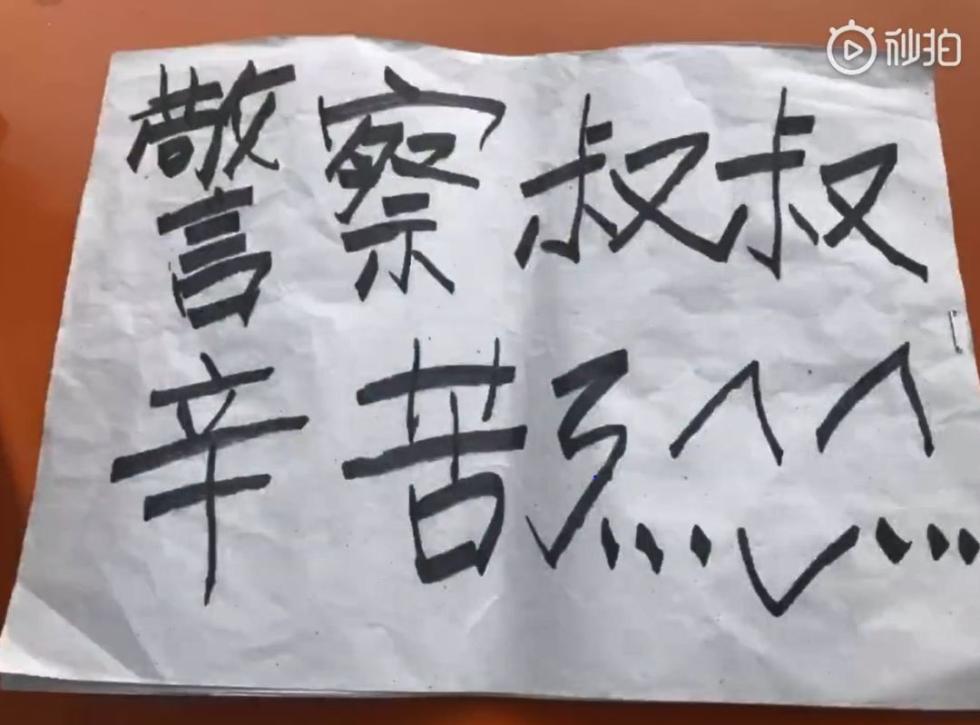 秒拍
警察叔叔
辛苦了^ ^